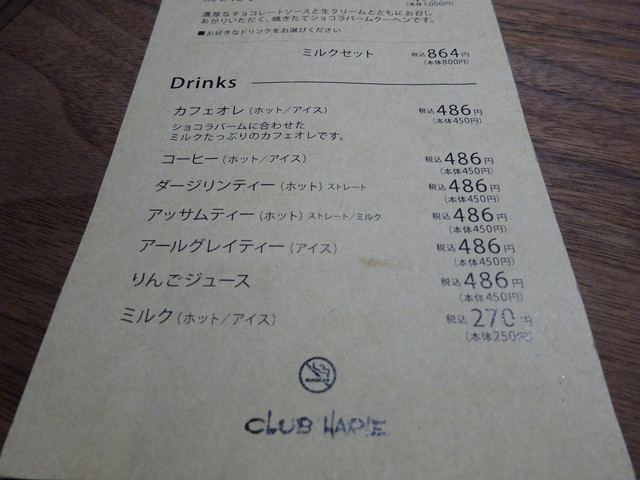 (本体1,000円)
濃厚なチョコレートソースと生クリームとともにお召し
あがりいただく、焼きたてショコラバームクーヘンです。
■お好きなドリンクをお選びください
ミルクセット 税込864円
(本体800円)
Drinks
カフェオレ(ホット/アイス) 税込486円
(本体450円)
ショコラバームに合わせた
ミルクたっぷりのカフェオレです。
コーヒー(ホット/アイス) 税込486円
(本体450円)
ダージリンティー(ホット)ストレート 税込486円
(本体450円)
アッサムティー(ホット)ストレート/ミルク 税込486円
(本体450円)
アールグレイティー(アイス) 税込486円
(本体450円)
りんごジュース 税込486円
(本体450円)
ミルク(ホット/アイス) 税込270円
(本体250円)
CLUB HARIE